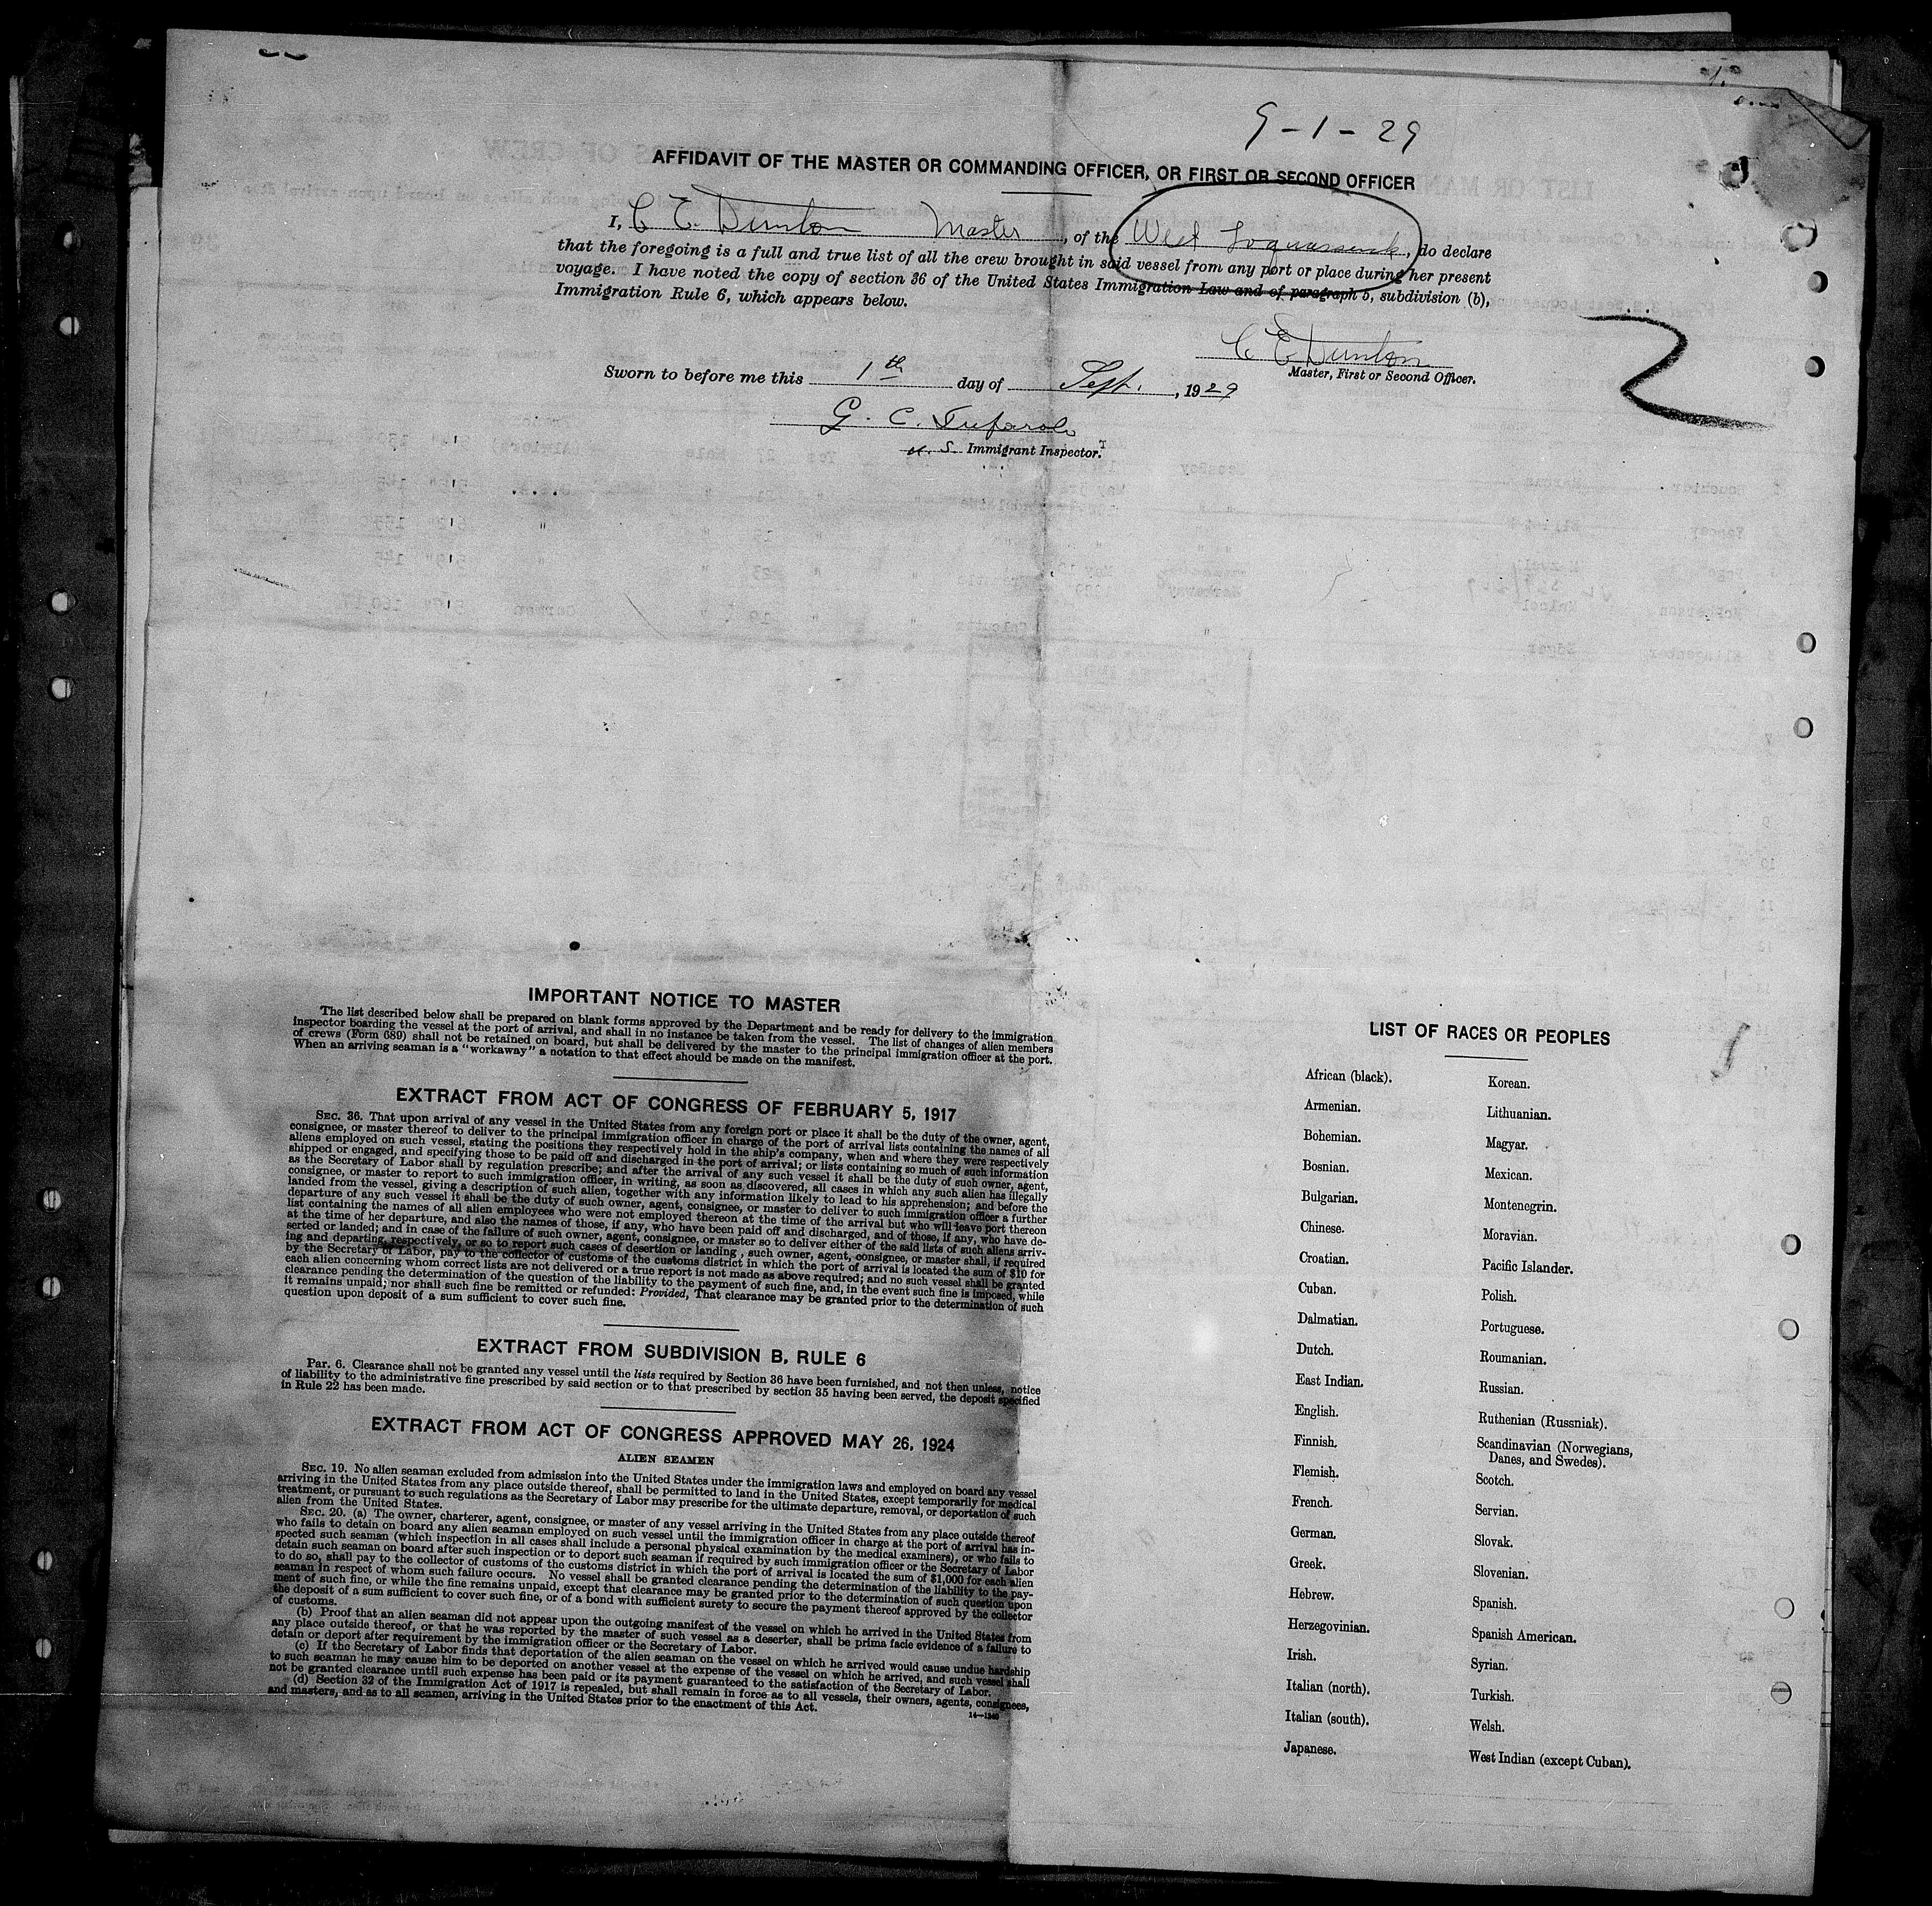 9-1-29
AFFIDAVIT OF THE MASTER OR COMMANDING OFFICER, OR FIRST OR SECOND OFFICER
I, C E Dunton Master, of the West Loquassuck, do declare
that the foregoing is a full and true list of all the crew brought in said vessel from any port or place during her present
voyage. I have noted the copy of section 36 of the United States Immigration Law and of paragraph 5, subdivision (b),
Immigration Rule 6, which appears below.
C E Dunton
Master, First or Second Officer.
2
Sworn to before me this 1th day of Sept., 1929
G. C. Tufarolo
U. S. Immigrant Inspector.
IMPORTANT NOTICE TO MASTER
The list described below shall be prepared on blank forms approved by the Department and be ready for delivery to the immigration
inspector boarding the vessel at the port of arrival, and shall in no instance be taken from the vessel. The list of changes of alien members
of crews (Form 689) shall not be retained on board, but shall be delivered by the master to the principal immigration officer at the port.
When an arriving seaman is a "workaway" a notation to that effect should be made on the manifest.
EXTRACT FROM ACT OF CONGRESS OF FEBRUARY 5, 1917
SEC. 36. That upon arrival of any vessel in the United States from any foreign port or place it shall be the duty of the owner, agent,
consignee, or master thereof to deliver to the principal immigration officer in charge of the port of arrival lists containing the names of all
aliens employed on such vessel, stating the positions they respectively hold in the ship's company, when and where they were respectively
shipped or engaged, and specifying those to be paid off and discharged in the port of arrival; or lists containing so much of such information
as the Secretary of Labor shall by regulation prescribe; and after the arrival of any such vessel it shall be the duty of such owner, agent,
consignee, or master to report to such immigration officer, in writing, as soon as discovered, all cases in which any such alien has illegally
landed from the vessel, giving a description of such alien, together with any information likely to lead to his apprehension; and before the
departure of any such vessel it shall be the duty of such owner, agent, consignee, or master to deliver to such immigration officer a further
list containing the names of all alien employees who were not employed thereon at the time of the arrival but who will leave port thereon
at the time of her departure, and also the names of those, if any, who have been paid off and discharged, and of those, if any, who have de-
serted or landed; and in case of the failure of such owner, agent, consignee, or master so to deliver either of the said lists of such aliens arriv-
ing and departing, respectively, or so to report such cases of desertion or landing, such owner, agent, consignee, or master shall, if required
by the Secretary of Labor, pay to the collector of customs of the customs district in which the port of arrival is located the sum of $10 for
each alien concerning whom correct lists are not delivered or a true report is not made as above required; and no such vessel shall be granted
clearance pending the determination of the question of the liability to the payment of such fine, and, in the event such fine is imposed, while
it remains unpaid; nor shall such fine be remitted or refunded: Provided, That clearance may be granted prior to the determination of such
question upon deposit of a sum sufficient to cover such fine.
EXTRACT FROM SUBDIVISION B, RULE 6
Par. 6. Clearance shall not be granted any vessel until the lists required by Section 36 have been furnished, and not then unless, notice
of liability to the administrative fine prescribed by said section or to that prescribed by section 35 having been served, the deposit specified
in Rule 22 has been made.
EXTRACT FROM ACT OF CONGRESS APPROVED MAY 26, 1924
ALIEN SEAMEN
SEC. 19. No alien seaman excluded from admission into the United States under the immigration laws and employed on board any vessel
arriving in the United States from any place outside thereof, shall be permitted to land in the United States, except temporarily for medical
treatment, or pursuant to such regulations as the Secretary of Labor may prescribe for the ultimate departure, removal, or deportation of such
alien from the United States.
SEC. 20. (a) The owner, charterer, agent, consignee, or master of any vessel arriving in the United States from any place outside thereof
who fails to detain on board any alien seaman employed on such vessel until the immigration officer in charge at the port of arrival has in-
spected such seaman (which inspection in all cases shall include a personal physical examination by the medical examiners), or who fails to
detain such seaman on board after such inspection or to deport such seaman if required by such immigration officer or the Secretary of Labor
to do so, shall pay to the collector of customs of the customs district in which the port of arrival is located the sum of $1,000 for each alien
seaman in respect of whom such failure occurs. No vessel shall be granted clearance pending the determination of the liability to the pay-
ment of such fine, or while the fine remains unpaid, except that clearance may be granted prior to the determination of such question upon
the deposit of a sum sufficient to cover such fine, or of a bond with sufficient surety to secure the payment thereof approved by the collector
of customs.
(b) Proof that an alien seaman did not appear upon the outgoing manifest of the vessel on which he arrived in the United States from
any place outside thereof, or that he was reported by the master of such vessel as a deserter, shall be prima facie evidence of a failure to
detain or deport after requirement by the immigration officer or the Secretary of Labor.
(c) If the Secretary of Labor finds that deportation of the alien seaman on the vessel on which he arrived would cause undue hardship
to such seaman he may cause him to be deported on another vessel at the expense of the vessel on which he arrived, and such vessel shall
not be granted clearance until such expense has been paid or its payment guaranteed to the satisfaction of the Secretary of Labor.
(d) Section 32 of the Immigration Act of 1917 is repealed, but shall remain in force as to all vessels, their owners, agents, consignees,
and masters, and as to all seamen, arriving in the United States prior to the enactment of this Act.
14-1240
LIST OF RACES OR PEOPLES
African (black).
Armenian.
Bohemian.
Bosnian.
Bulgarian.
Chinese.
Croatian.
Cuban.
Dalmatian.
Dutch.
East Indian.
English.
Finnish.
Flemish.
French.
German.
Greek.
Hebrew.
Herzegovinian.
Irish.
Italian (north).
Italian (south).
Japanese.
Korean.
Lithuanian.
Magyar.
Mexican.
Montenegrin.
Moravian.
Pacific Islander.
Polish.
Portuguese.
Roumanian.
Russian.
Ruthenian (Russniak).
Scandinavian (Norwegians,
Danes, and Swedes).
Scotch.
Servian.
Slovak.
Slovenian.
Spanish.
Spanish American.
Syrian.
Turkish.
Welsh.
West Indian (except Cuban).